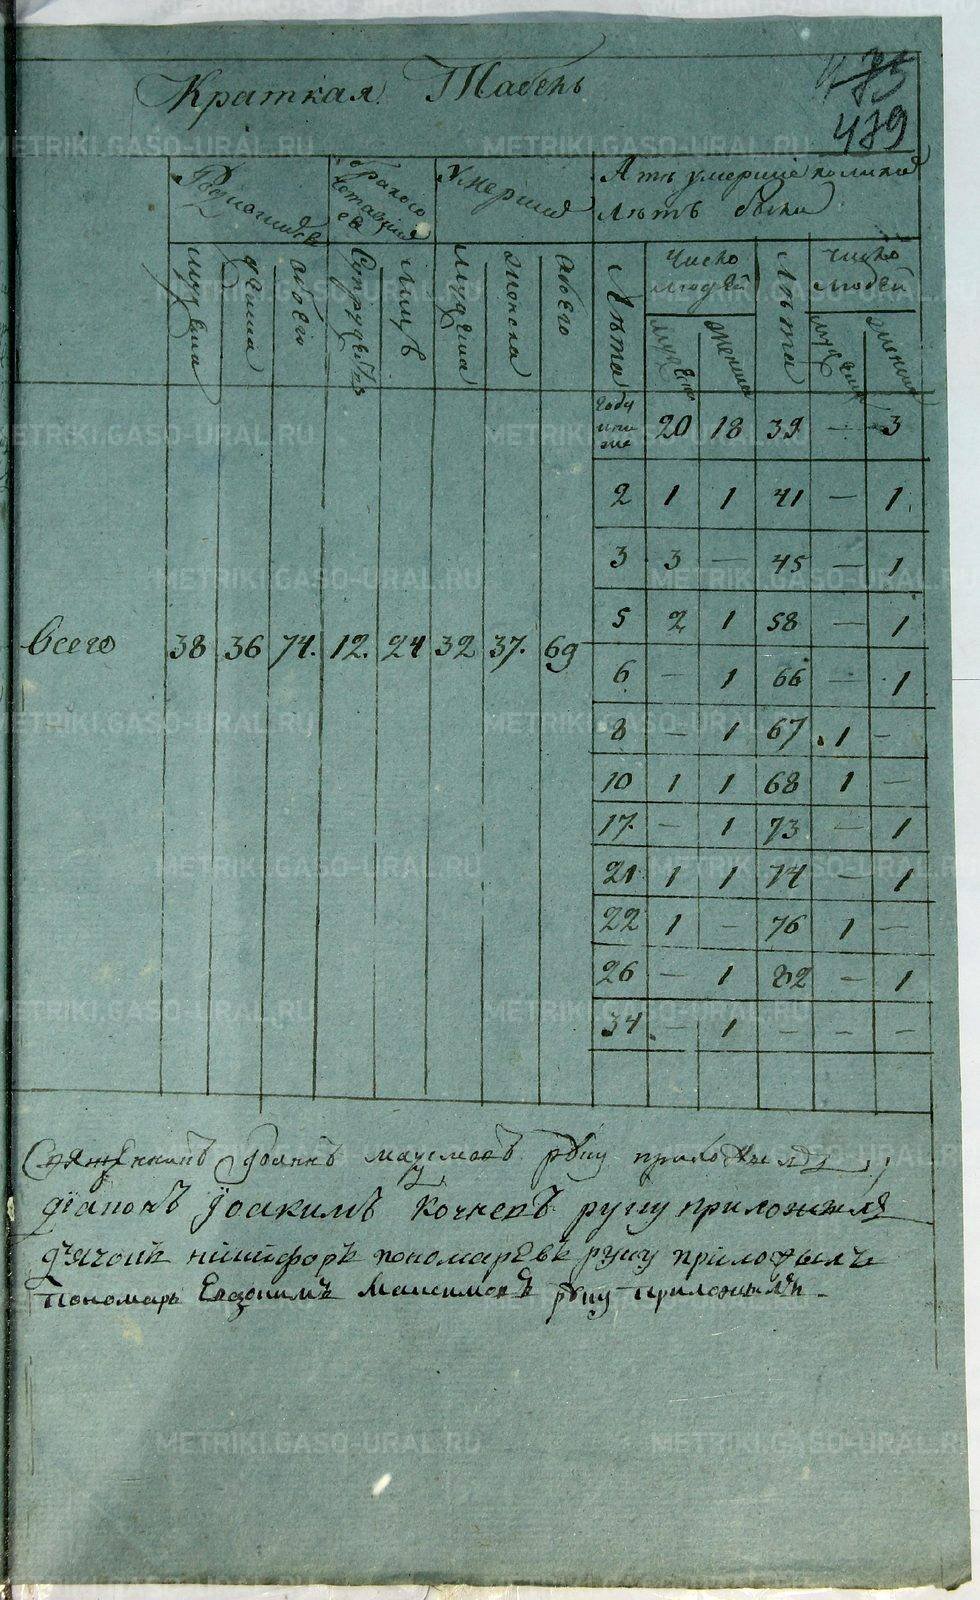 Краткая Табель
475
479
Родившихся
бракосочетавшихся
Умершия
А тѣ умершіе коликихъ
лѣтъ были
мужеска
женска
обоего
Супружествъ
лицъ
мужеска
женска
обоего
Лѣта
Число людей
Лѣта
Число людей
мужеска
женска
мужеска
женска
году и ниже 20 18 39 — 3
2 1 1 41 — 1
3 3 — 45 — 1
5 2 1 58 — 1
Всего 38 36 74. 12. 24 32 37. 69
6 — 1 66 — 1
8 — 1 67 1 —
10 1 1 68 1 —
17 — 1 73 — 1
21 1 1 74 — 1
22 1 — 76 1 —
26 — 1 82 — 1
34 — 1 — — —
Священникъ Іоаннъ руку приложилъ
діаконъ Іоакимъ Кочневъ руку приложилъ
дьячокъ никифоръ пономаревъ руку приложилъ
пономарь Евдокимъ Максимовъ руку приложилъ
METRIKI.GASO-URAL.RU